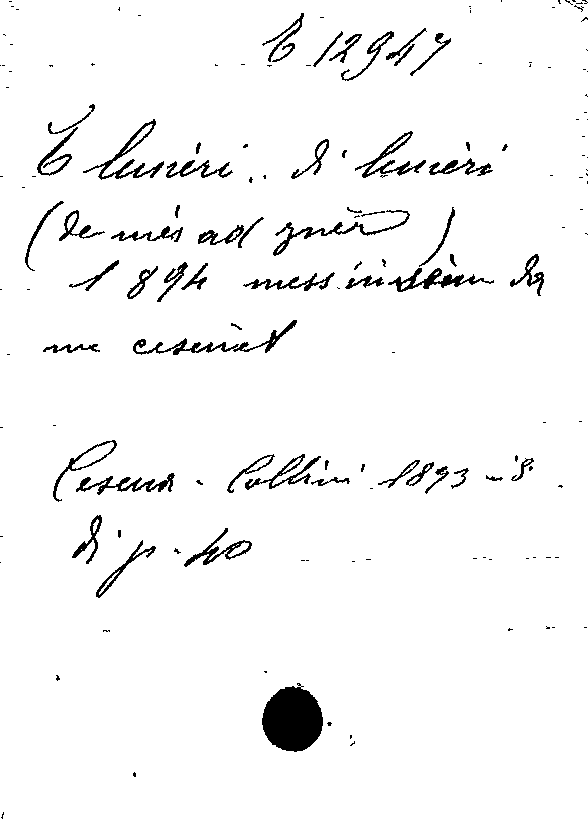 E 12947
E lunèri .. di lunèri
(de més ad znèr)
1894 mess insèm da
un cesenat
Cesena - Collini 1893 - 8°
di p. 40